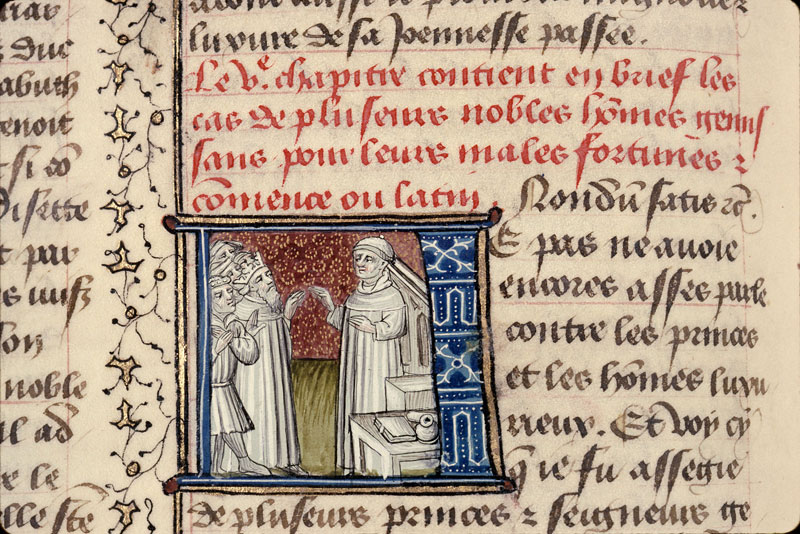 s duc
abuth
enoit
t si cõ
disette
t par
son
noble
il ad
re le
elle stẽ
luxure de sa Joennesse passee.
Le Ve. chapitre contient en brief les
cas de pluseurs nobles hõmes gemis
sans pour leurs males fortunes ⁊
cõmence ou latin. Nondũ satis ⁊c̃.
E pas ne avoie
encores asses parle
contre les princes
et les hõmes luxu
rieux. Et voy cy
q̃ ie fu assegie
de pluseurs princes ⁊ seigneurs ge